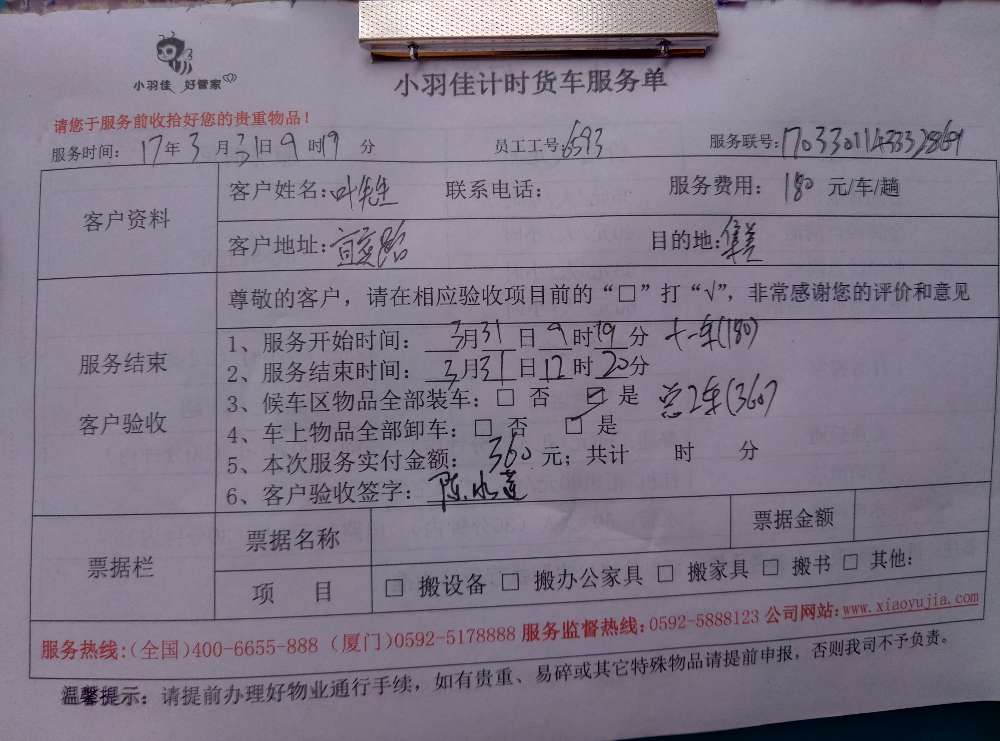 小羽佳 好管家
小羽佳计时货车服务单
请您于服务前收拾好您的贵重物品！
服务时间：17年3月31日9时19分 员工工号：6593 服务联号：
客户资料
客户姓名：叶先生 联系电话： 服务费用：180元/车/趟
客户地址： 目的地：集美
尊敬的客户，请在相应验收项目前的“□”打“√”，非常感谢您的评价和意见
服务结束
客户验收
1、服务开始时间：3月31日9时19分 十一车(180)
2、服务结束时间：3月31日12时20分
3、候车区物品全部装车：□ 否 ☑ 是 总2车(360)
4、车上物品全部卸车：□ 否 ☑ 是
5、本次服务实付金额：360元；共计 时 分
6、客户验收签字：陈水莲
票据栏
票据名称 票据金额
项 目 □ 搬设备 □ 搬办公家具 □ 搬家具 □ 搬书 □ 其他：
服务热线：(全国)400-6655-888 (厦门)0592-5178888 服务监督热线：0592-5888123 公司网站：www.xiaoyujia.com
温馨提示：请提前办理好物业通行手续，如有贵重、易碎或其它特殊物品请提前申报，否则我司不予负责。